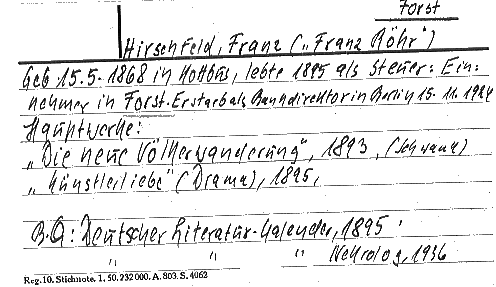 Forst
Hirschfeld, Franz („Franz Röhr")
Geb. 15.5. 1868 in Kottbus, lebte 1895 als Steuer: Ein:
nehmer in Forst. Er starb als Bankdirektor in Berlin 15. 11. 1924
Hauptwerke:
„Die neue Völkerwanderung", 1893, (Schwank)
„Künstlerliebe" (Drama), 1895,
B.Q: Deutscher Literatur-Kalender, 1895
" " " Nekrolog, 1936
Reg. 10. Stichnote. 1. 50. 232 000. A. 803. S. 4062